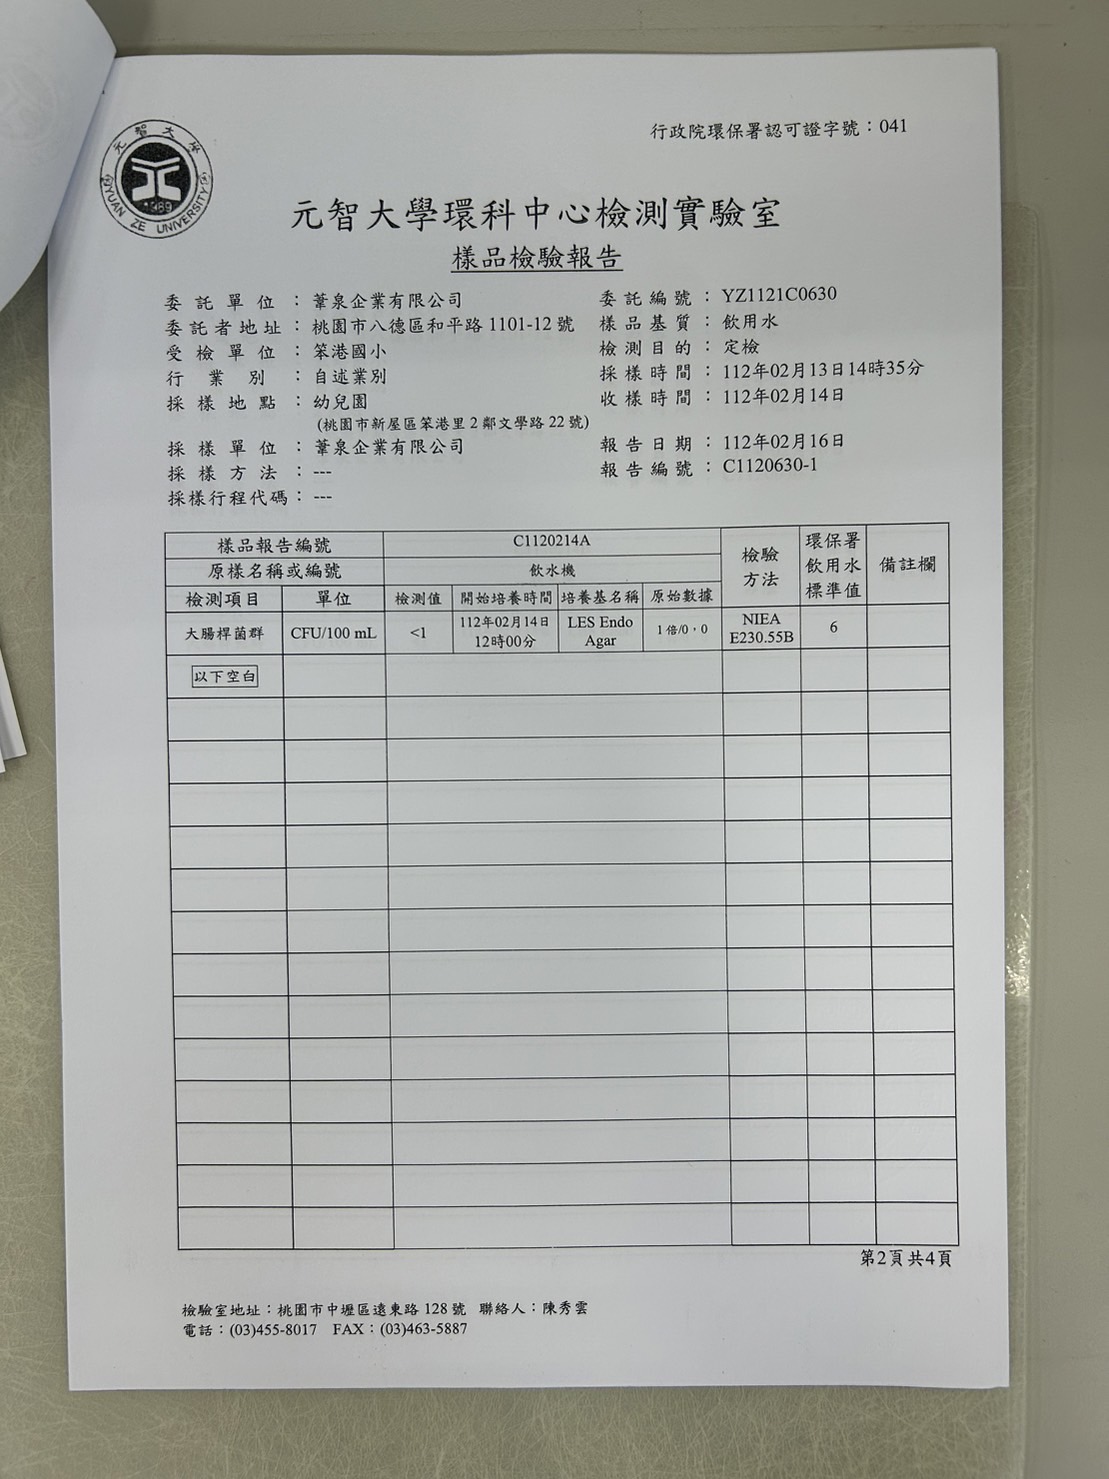 元智大學
YUAN ZE UNIVERSITY
1989
行政院環保署認可證字號：041
元智大學環科中心檢測實驗室
樣品檢驗報告
委託單位：葦泉企業有限公司 委託編號：YZ1121C0630
委託者地址：桃園市八德區和平路1101-12號 樣品基質：飲用水
受檢單位：笨港國小 檢測目的：定檢
行業別：自述業別 採樣時間：112年02月13日14時35分
採樣地點：幼兒園 收樣時間：112年02月14日
(桃園市新屋區笨港里2鄰文學路22號)
採樣單位：葦泉企業有限公司 報告日期：112年02月16日
採樣方法：--- 報告編號：C1120630-1
採樣行程代碼：---
樣品報告編號 C1120214A 檢驗方法 環保署飲用水標準值 備註欄
原樣名稱或編號 飲水機
檢測項目 單位 檢測值 開始培養時間 培養基名稱 原始數據
大腸桿菌群 CFU/100 mL <1 112年02月14日12時00分 LES Endo Agar 1倍/0，0 NIEA E230.55B 6
以下空白
第2頁共4頁
檢驗室地址：桃園市中壢區遠東路128號 聯絡人：陳秀雲
電話：(03)455-8017 FAX：(03)463-5887